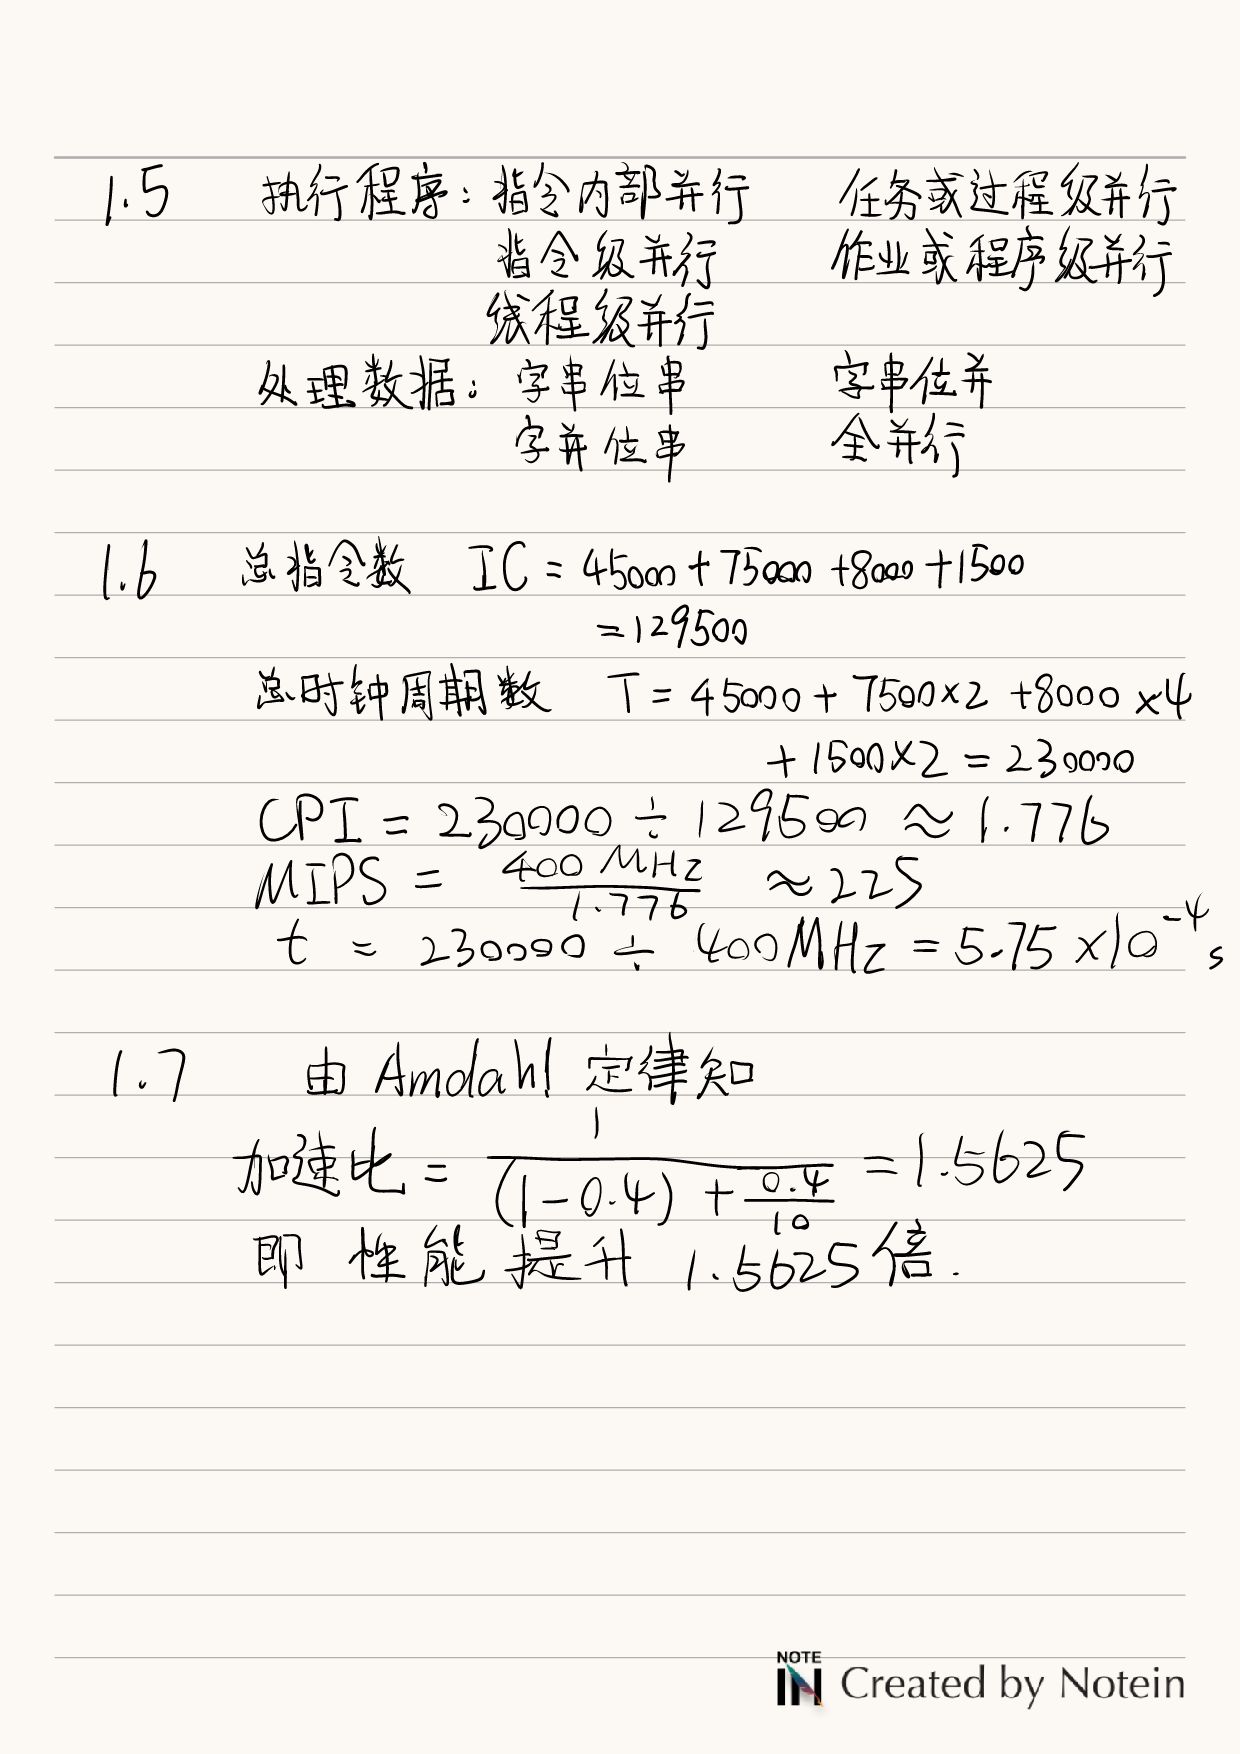 1.5 执行程序: 指令内部并行 任务或过程级并行
指令级并行 作业或程序级并行
线程级并行
处理数据: 字串位串 字串位并
字并位串 全并行
1.6 总指令数 IC = 45000 + 75000 + 8000 + 1500
= 129500
总时钟周期数 T = 45000 + 7500×2 + 8000 × 4
+ 1500×2 = 230000
CPI = 230000 ÷ 129500 ≈ 1.776
MIPS = 400 MHz / 1.776 ≈ 225
t = 230000 ÷ 400MHz = 5.75 × 10^-4 s
1.7 由 Amdahl 定律知
加速比 = 1 / ((1-0.4) + 0.4/10) = 1.5625
即 性能提升 1.5625倍.
NOTE IN Created by Notein